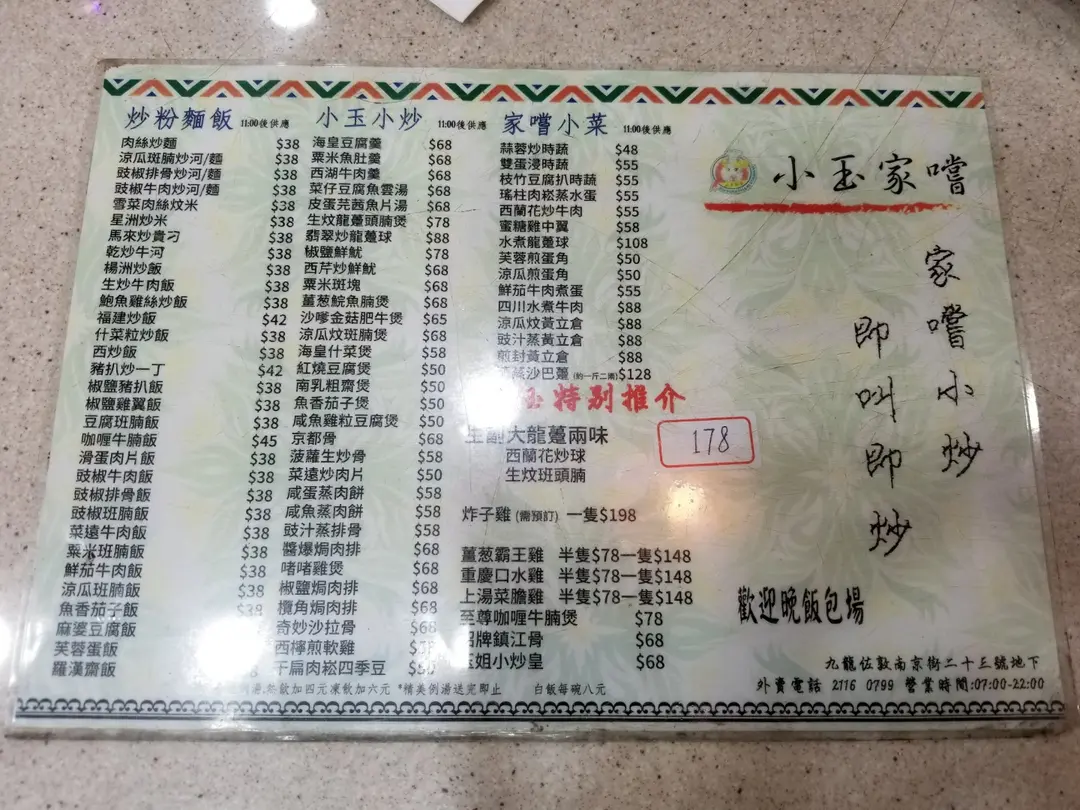 炒粉麵飯 11:00後供應
肉絲炒麵 $38
涼瓜斑腩炒河/麵 $38
豉椒排骨炒河/麵 $38
豉椒牛肉炒河/麵 $38
雪菜肉絲炆米 $38
星洲炒米 $38
馬來炒貴刁 $38
乾炒牛河 $38
楊洲炒飯 $38
生炒牛肉飯 $38
鮑魚雞絲炒飯 $38
福建炒飯 $42
什菜粒炒飯 $38
西炒飯 $38
豬扒炒一丁 $42
椒鹽豬扒飯 $38
椒鹽雞翼飯 $38
豆腐斑腩飯 $38
咖喱牛腩飯 $45
滑蛋肉片飯 $38
豉椒牛肉飯 $38
豉椒排骨飯 $38
豉椒班腩飯 $38
菜遠牛肉飯 $38
粟米班腩飯 $38
鮮茄牛肉飯 $38
涼瓜班腩飯 $38
魚香茄子飯 $38
麻婆豆腐飯
芙蓉蛋飯
羅漢齋飯
小玉小炒 11:00後供應
海皇豆腐羹 $68
粟米魚肚羹 $68
西湖牛肉羹 $68
菜仔豆腐魚雲湯 $68
皮蛋芫茜魚片湯 $68
生炆龍躉頭腩煲 $78
翡翠炒龍躉球 $88
椒鹽鮮魷 $78
西芹炒鮮魷 $68
粟米斑塊 $68
薑葱鯇魚腩煲 $68
沙嗲金菇肥牛煲 $65
涼瓜炆斑腩煲 $68
海皇什菜煲 $58
紅燒豆腐煲 $50
南乳粗齋煲 $50
魚香茄子煲 $50
咸魚雞粒豆腐煲 $50
京都骨 $68
菠蘿生炒骨 $58
菜遠炒肉片 $50
咸蛋蒸肉餅 $58
咸魚蒸肉餅 $58
豉汁蒸排骨 $58
醬爆焗肉排 $68
啫啫雞煲 $68
椒鹽焗肉排 $68
欖角焗肉排 $68
奇妙沙拉骨 $68
西檸煎軟雞
干扁肉崧四季豆
家嚐小菜 11:00後供應
蒜蓉炒時蔬 $48
雙蛋浸時蔬 $55
枝竹豆腐扒時蔬 $55
瑤柱肉崧蒸水蛋 $55
西蘭花炒牛肉 $55
蜜糖雞中翼 $58
水煮龍躉球 $108
芙蓉煎蛋角 $50
涼瓜煎蛋角 $50
鮮茄牛肉煮蛋 $55
四川水煮牛肉 $88
涼瓜炆黃立倉 $88
豉汁蒸黃立倉 $88
煎封黃立倉 $88
蒸沙巴躉 (約一斤二兩) $128
玉特別推介
生劏大龍躉兩味 178
西蘭花炒球
生炆班頭腩
炸子雞 (需預訂) 一隻$198
薑葱霸王雞 半隻$78一隻$148
重慶口水雞 半隻$78一隻$148
上湯菜膽雞 半隻$78一隻$148
至尊咖喱牛腩煲 $78
招牌鎮江骨 $68
玉姐小炒皇 $68
熱飲加四元凍飲加六元 *精美例湯送完即止 白飯每碗八元
小玉家嚐
家嚐小炒
即叫即炒
歡迎晚飯包場
九龍佐敦南京街二十三號地下
外賣電話 2116 0799 營業時間:07:00-22:00